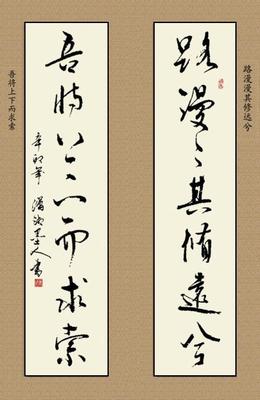 路漫漫其修远兮
路漫〻其脩遠兮
吾將上下而求索
辛卯年 人書
吾将上下而求索